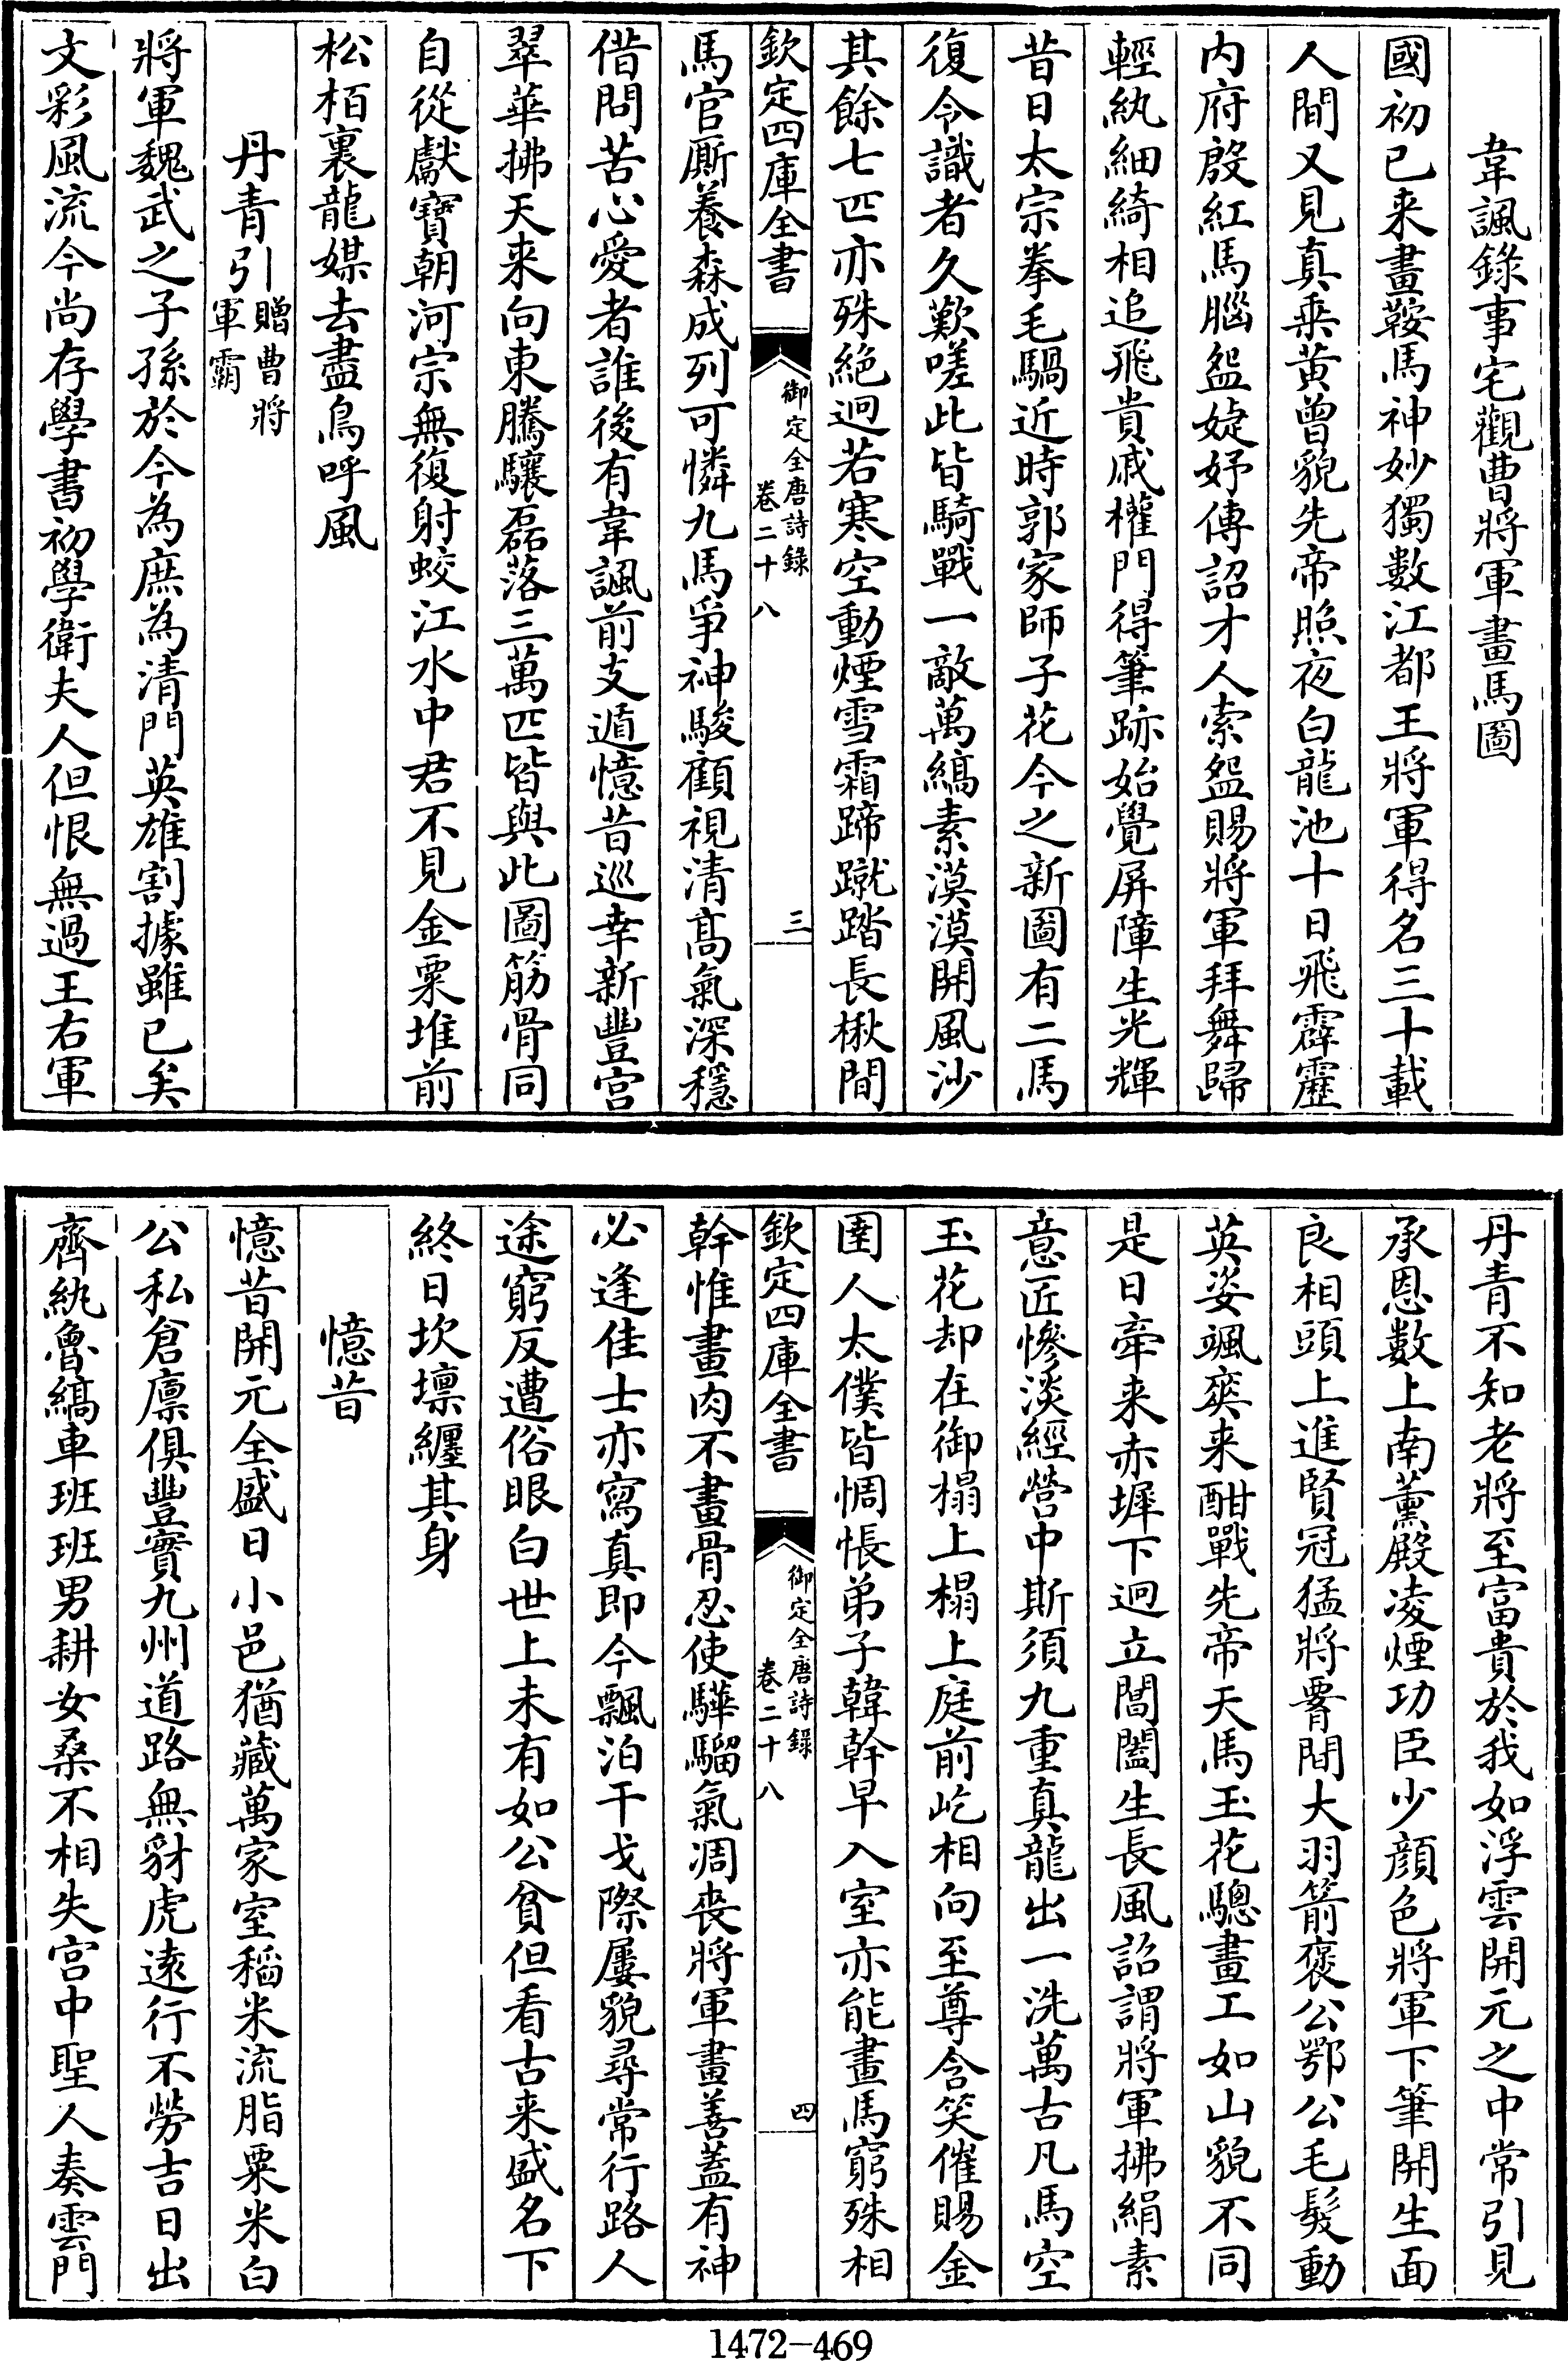 韋諷錄事宅觀曹將軍畫馬圖
國初已来畫鞍馬神妙獨數江都王將軍得名三十載
人間又見真乘黃曾貌先帝照夜白龍池十日飛霹靂
内府殷紅馬腦盌婕妤傳詔才人索盌賜將軍拜舞歸
輕紈細綺相追飛貴戚權門得筆跡始覺屏障生光輝
昔日太宗拳毛騧近時郭家師子花今之新圖有二馬
復令識者久歎嗟此皆騎戰一敵萬縞素漠漠開風沙
其餘七匹亦殊絕迥若寒空動煙雪霜蹄蹴踏長楸間
欽定四庫全書
御定全唐詩錄
卷二十八
三
馬官厮養森成列可憐九馬爭神駿顧視清髙氣深穩
借問苦心愛者誰後有韋諷前支遁憶昔巡幸新豐宫
翠華拂天来向東騰驤磊落三萬匹皆與此圖筋骨同
自從獻寶朝河宗無復射蛟江水中君不見金粟堆前
松栢裏龍媒去盡鳥呼風
丹青引贈曹將軍霸
將軍魏武之子孫於今為庶為清門英雄割據雖已矣
文彩風流今尚存學書初學衛夫人但恨無過王右軍
丹青不知老將至富貴於我如浮雲開元之中常引見
承恩數上南薰殿凌煙功臣少顔色將軍下筆開生面
良相頭上進賢冠猛將䙅間大羽箭褒公鄂公毛髮動
英姿颯爽来酣戰先帝天馬玉花驄畫工如山貌不同
是日牽来赤墀下迥立閶闔生長風詔謂將軍拂絹素
意匠慘淡經營中斯須九重真龍出一洗萬古凡馬空
玉花却在御榻上榻上庭前屹相向至尊含笑催賜金
圉人太僕皆惆悵弟子韓幹早入室亦能畫馬窮殊相
欽定四庫全書
御定全唐詩錄
卷二十八
四
幹惟畫肉不畫骨忍使驊騮氣凋喪將軍畫善蓋有神
必逢佳士亦寫真即今飄泊干戈際屢貌尋常行路人
途窮反遭俗眼白世上未有如公貧但看古来盛名下
終日坎壈纏其身
憶昔
憶昔開元全盛日小邑猶藏萬家室稻米流脂粟米白
公私倉廪俱豐實九州道路無豺虎遠行不勞吉日出
齊紈魯縞車班班男耕女桑不相失宫中聖人奏雲門
1472-469